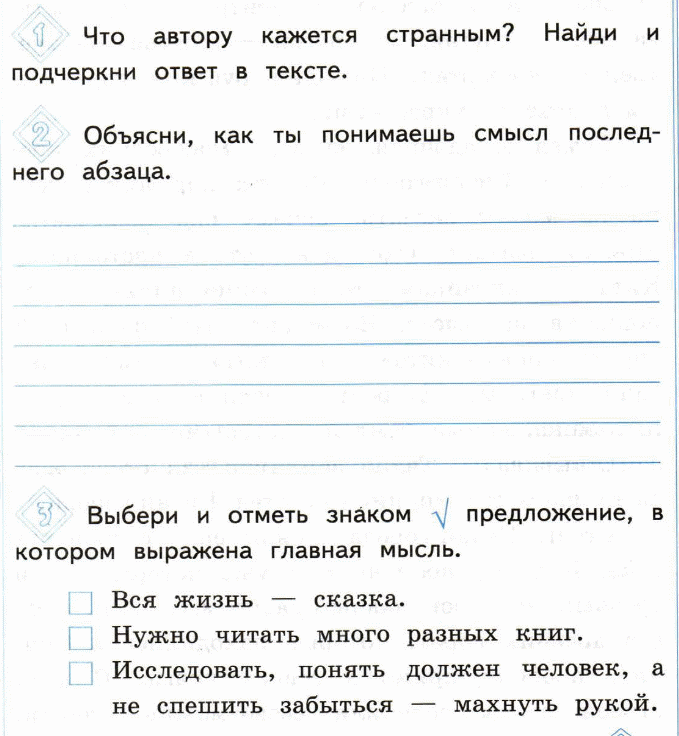 1 Что автору кажется странным? Найди и
подчеркни ответ в тексте.
2 Объясни, как ты понимаешь смысл послед-
него абзаца.
3 Выбери и отметь знаком √ предложение, в
котором выражена главная мысль.
Вся жизнь — сказка.
Нужно читать много разных книг.
Исследовать, понять должен человек, а
не спешить забыться — махнуть рукой.